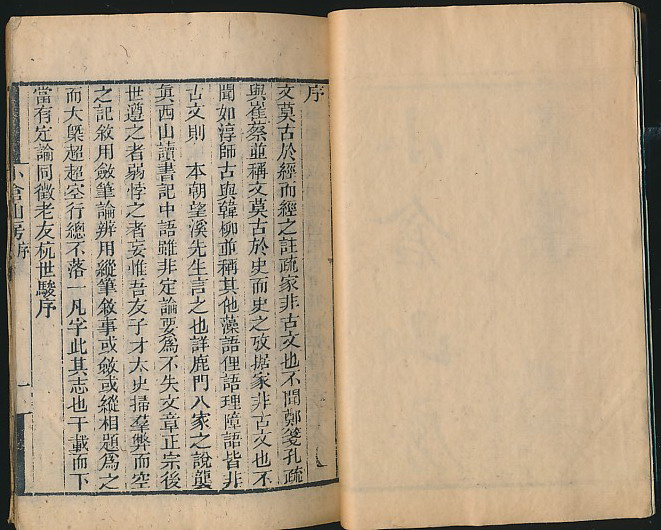 序
文莫古於經而經之註疏家非古文也不聞鄭箋孔疏
與崔蔡並稱文莫古於史而史之攷据家非古文也不
聞如淳師古與韓柳並稱其他藻語俚語理障語皆非
古文則 本朝望溪先生言之也詳鹿門八家之說襲
眞西山讀書記中語雖非定論要爲不失文章正宗後
世遵之者弱悖之者妄惟吾友子才太史掃羣弊而空
之記敘用斂筆論辨用縱筆敘事或斂或縱相題爲之
而大槩超超空行總不落一凡字此其志也千載而下
當有定論同徵老友杭世駿序
小倉山房 序 一